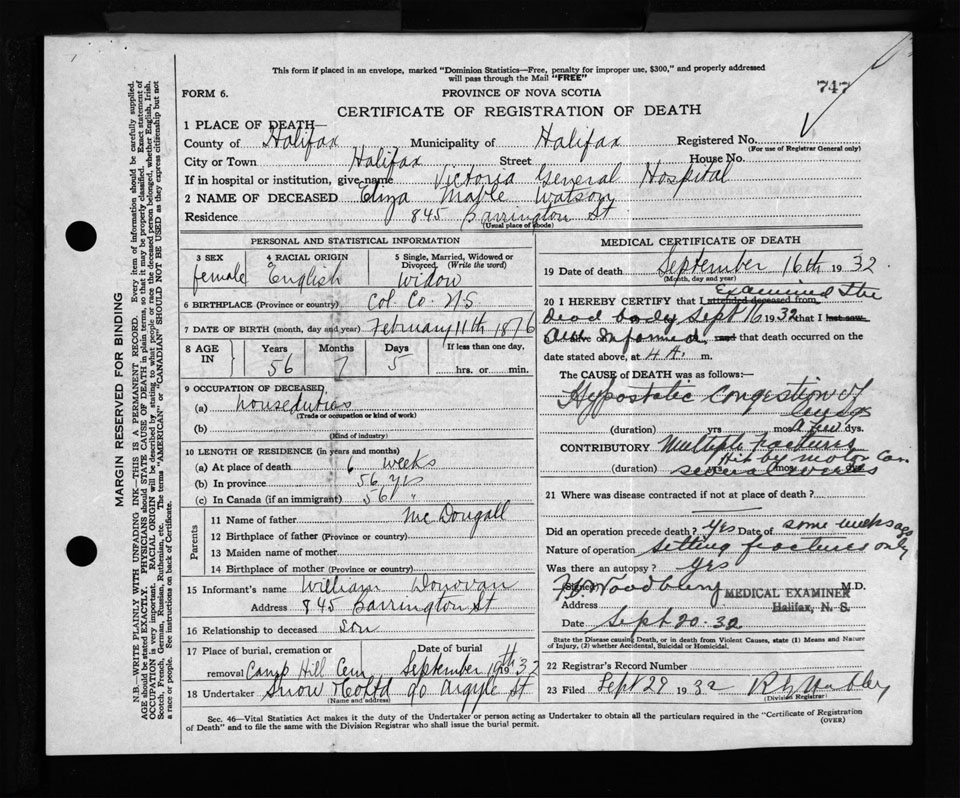 This form if placed in an envelope, marked "Dominion Statistics—Free, penalty for improper use, $300," and properly addressed
will pass through the Mail "FREE"
747
FORM 6.
PROVINCE OF NOVA SCOTIA
CERTIFICATE OF REGISTRATION OF DEATH
1 PLACE OF DEATH—
County of Halifax Municipality of Halifax Registered No.
(For use of Registrar General only)
City or Town Halifax Street House No.
If in hospital or institution, give name Victoria General Hospital
2 NAME OF DECEASED Eliza Mable Watson
Residence 845 Barrington St
(Usual place of abode)
PERSONAL AND STATISTICAL INFORMATION
3 SEX 4 RACIAL ORIGIN 5 Single, Married, Widowed or
Divorced. (Write the word)
female English Widow
6 BIRTHPLACE (Province or country) Col. Co. N S
7 DATE OF BIRTH (month, day and year) February 11th 1876
8 AGE IN Years Months Days If less than one day,
56 7 5 hrs. or min.
9 OCCUPATION OF DECEASED
(a) houseduties
(Trade or occupation or kind of work)
(b)
(Kind of industry)
10 LENGTH OF RESIDENCE (in years and months)
(a) At place of death 6 weeks
(b) In province 56 yrs
(c) In Canada (if an immigrant) 56 "
Parents
11 Name of father McDougall
12 Birthplace of father (Province or country)
13 Maiden name of mother
14 Birthplace of mother (Province or country)
15 Informant's name William Donovan
Address 845 Barrington St
16 Relationship to deceased son
17 Place of burial, cremation or Date of burial
removal Camp Hill Cem September 1932
18 Undertaker Snow & Co Ltd 90 Argyle St
(Name and address)
MEDICAL CERTIFICATE OF DEATH
19 Date of death September 16th 1932
(Month, day and year)
Examined the
20 I HEREBY CERTIFY that I attended deceased from
dead body Sept 16 1932 that I last saw
am informed, and that death occurred on
date stated above, at 4 A. m.
The CAUSE of DEATH was as follows:—
Hypostatic Congestion of
lungs
(duration) yrs mos a few dys.
CONTRIBUTORY Multiple fractures
Hit by motor Car
(duration) yrs mos dys
several weeks
21 Where was disease contracted if not at place of death?
Did an operation precede death? yes Date of some weeks ago
Nature of operation setting fractures only
Was there an autopsy? yes
(Signed) M.D.
MEDICAL EXAMINER
Address Halifax, N. S.
Date Sept 20. 32
State the Disease causing Death, or in death from Violent Causes, state (1) Means and Nature
of Injury, (2) whether Accidental, Suicidal or Homicidal.
22 Registrar's Record Number
23 Filed Sept 29 1932
(Division Registrar)
Sec. 46—Vital Statistics Act makes it the duty of the Undertaker or person acting as Undertaker to obtain all the particulars required in the "Certificate of Registration
of Death" and to file the same with the Division Registrar who shall issue the burial permit.
(OVER)
MARGIN RESERVED FOR BINDING
N.B.—WRITE PLAINLY WITH UNFADING INK—THIS IS A PERMANENT RECORD. Every item of information should be carefully supplied.
AGE should be stated EXACTLY. PHYSICIANS should STATE CAUSE OF DEATH in plain terms, so that it may be properly classified. Exact statement of
OCCUPATION is very important. RACIAL ORIGIN will be described by stating to what people or race the deceased person belonged, whether English, Irish,
Scotch, French, German, Russian, Ruthenian, etc. The terms "AMERICAN" or "CANADIAN" SHOULD NOT BE USED as they express citizenship but not
a race or people. See instructions on back of Certificate.